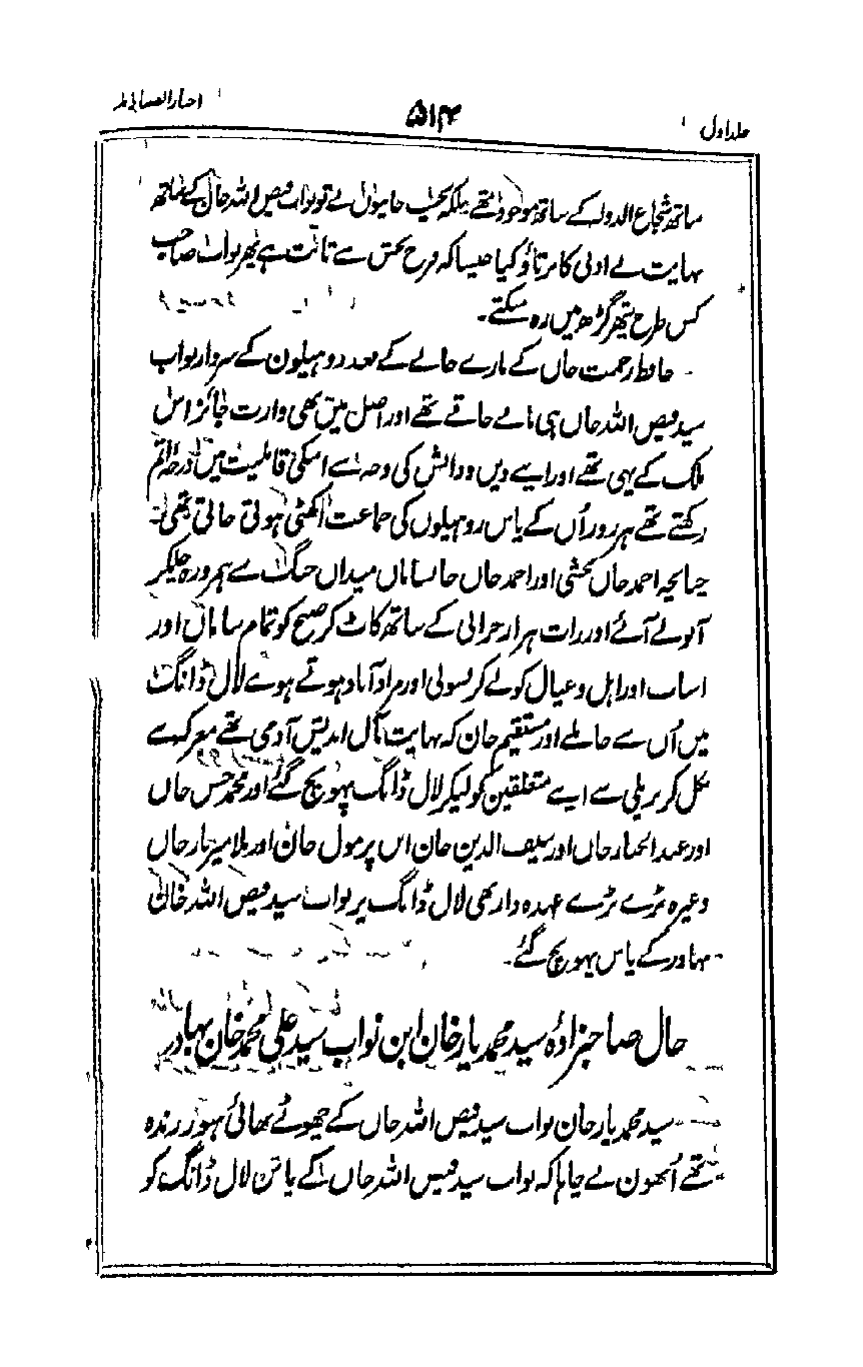 جلد اول ۵۱۴ اخبار الصنادید
ساتھ شجاع الدولہ کے ساتھ موجود تھے بلکہ نجیب خانیوں نے تو نواب فیض اللہ خاں کے ساتھ
نہایت بے ادبی کا برتاؤ کیا جیسا کہ فرح بخش سے ثابت ہے پھر نواب صاحب
کس طرح پتھر گڑھ میں رہ سکتے۔
حافظ رحمت خاں کے مارے جانے کے بعد روہیلون کے سردار نواب
سید فیض اللہ خاں ہی مانے جاتے تھے اور اصل میں بھی وارث جائز اس
ملک کے یہی تھے اور اپنے دین و دانش کی وجہ سے اسکی قابلیت میں درجہ اتم
رکھتے تھے ہر روز اُن کے پاس روہیلوں کی جماعت اکٹھی ہوتی جاتی تھی۔
چنانچہ احمد خاں بخشی اور احمد خاں خانساماں میدان جنگ سے ہمروزہ چلکر
آنولے آئے اور رات ہزار خرابی کے ساتھ کاٹ کر صبح کو تمام سامان اور
اسباب اور اہل و عیال کو لے کر بسولی اور مرادآباد ہوتے ہوے لال ڈانگ
میں اُن سے جا ملے اور مستقیم خان کہ نہایت مآل اندیش آدمی تھے معرکے سے
نکل کر بریلی سے اپنے متعلقین کو لیکر لال ڈانگ پہونچ گئے اور محمد حسن خاں
اور عبد الجبار خاں اور سیف الدین خان ابن پرمول خان اور ملا میر باز خاں
وغیرہ بڑے بڑے عہدہ دار بھی لال ڈانگ پر نواب سید فیض اللہ خاں
بہادر کے پاس پہونچ گئے۔
حال صاحبزادۂ سید محمد یار خان ابن نواب سید علی محمد خان بہادر
سید محمد یار خان نواب سید فیض اللہ خاں کے چھوٹے بھائی ہنوز زندہ
تھے اُنھون نے چاہا کہ نواب سید فیض اللہ خاں کے پاس لال ڈانگ کو